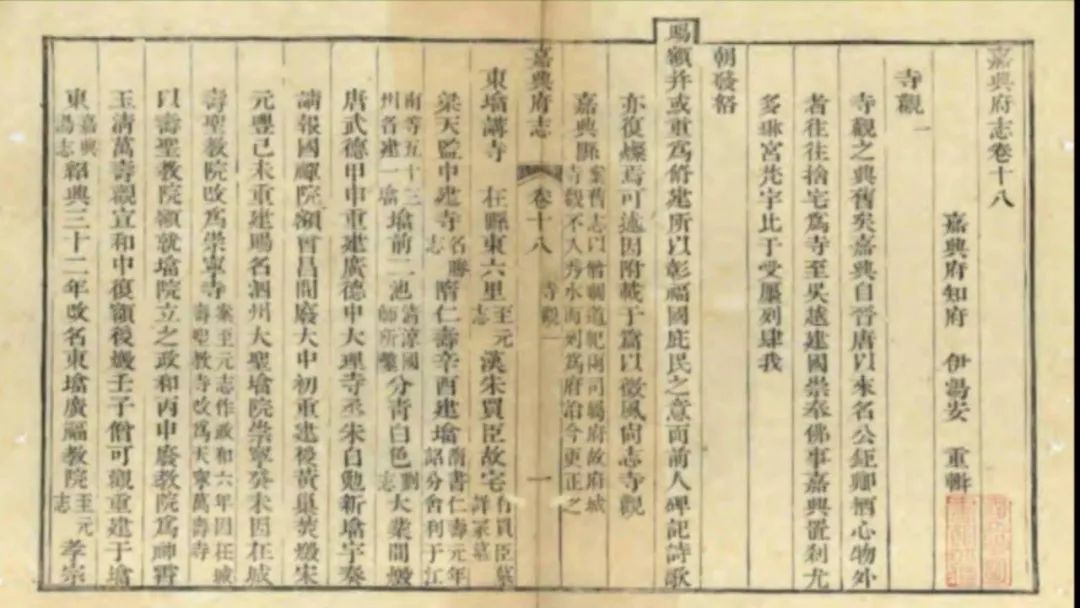 嘉興府志卷十八
嘉興府知府 伊湯安 重輯
寺觀一
寺觀之興舊矣嘉興自晉唐以來名公鉅卿栖心物外
者往往捨宅為寺至吳越建國崇奉佛事嘉興置剎尤
多琳宮梵宇比于受廛列肆我
朝發帑
賜額并或重為修建所以彰福國庇民之意而前人碑記詩歌
亦復燦焉可述因附載于篇以徵風尚志寺觀
嘉興縣 案舊志以僧綱道紀兩司屬府故府城
寺觀不入秀水而列為府治今更正之
嘉興府志 卷十八 寺觀一 一
東墖講寺 在縣東六里 至元志 漢朱買臣故宅 有買臣墓
詳冢墓
梁天監中建寺 名勝志 隋仁壽辛酉建墖 隋書仁壽元年
詔分舍利于江
南等五十三
州各建一墖 墖前二池 清淳國
師所鑿 分青白色 劉志 大業間燬
唐武德甲申重建廣德中大理寺丞朱自勉新墖宇奏
請報國禪院額會昌間廢大中初重建後黃巢焚燬宋
元豐己未重建賜名泗州大聖墖院崇寧癸未因在城
壽聖教院改為崇寧寺 案至元志作政和六年因在城
壽聖教寺改為天寧萬壽寺
以壽聖教院額就墖院立之政和丙申廢教院為神霄
玉清萬壽觀宣和中復額後燬壬子僧可觀重建于墖
東 嘉興
湯志 紹興三十二年改名東墖廣福教院 至元志 孝宗